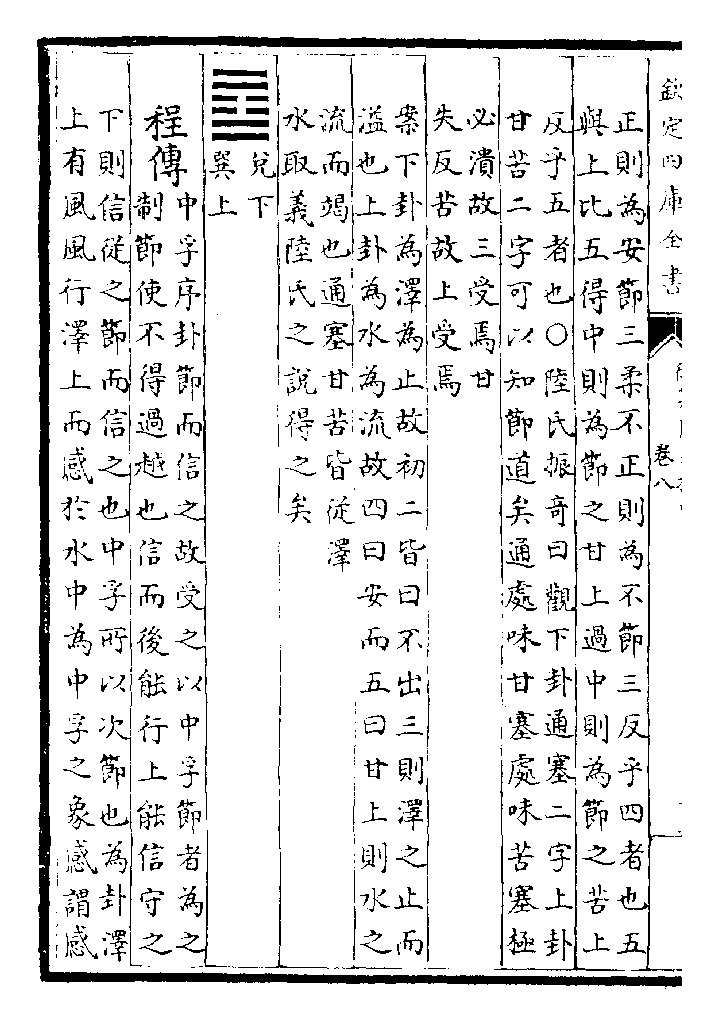 欽定四庫全書
卷八
正則為安節三柔不正則為不節三反乎四者也五
與上比五得中則為節之甘上過中則為節之苦上
反乎五者也○陸氏振奇曰觀下卦通塞二字上卦
甘苦二字可以知節道矣通處味甘塞處味苦塞極
必潰故三受焉甘
失反苦故上受焉
案下卦為澤為止故初二皆曰不出三則澤之止而
溢也上卦為水為流故四曰安而五曰甘上則水之
流而竭也通塞甘苦皆從澤
水取義陸氏之說得之矣
兌下
巽上
程傳
中孚序卦節而信之故受之以中孚節者為之
制節使不得過越也信而後能行上能信守之
下則信從之節而信之也中孚所以次節也為卦澤
上有風風行澤上而感於水中為中孚之象感謂感